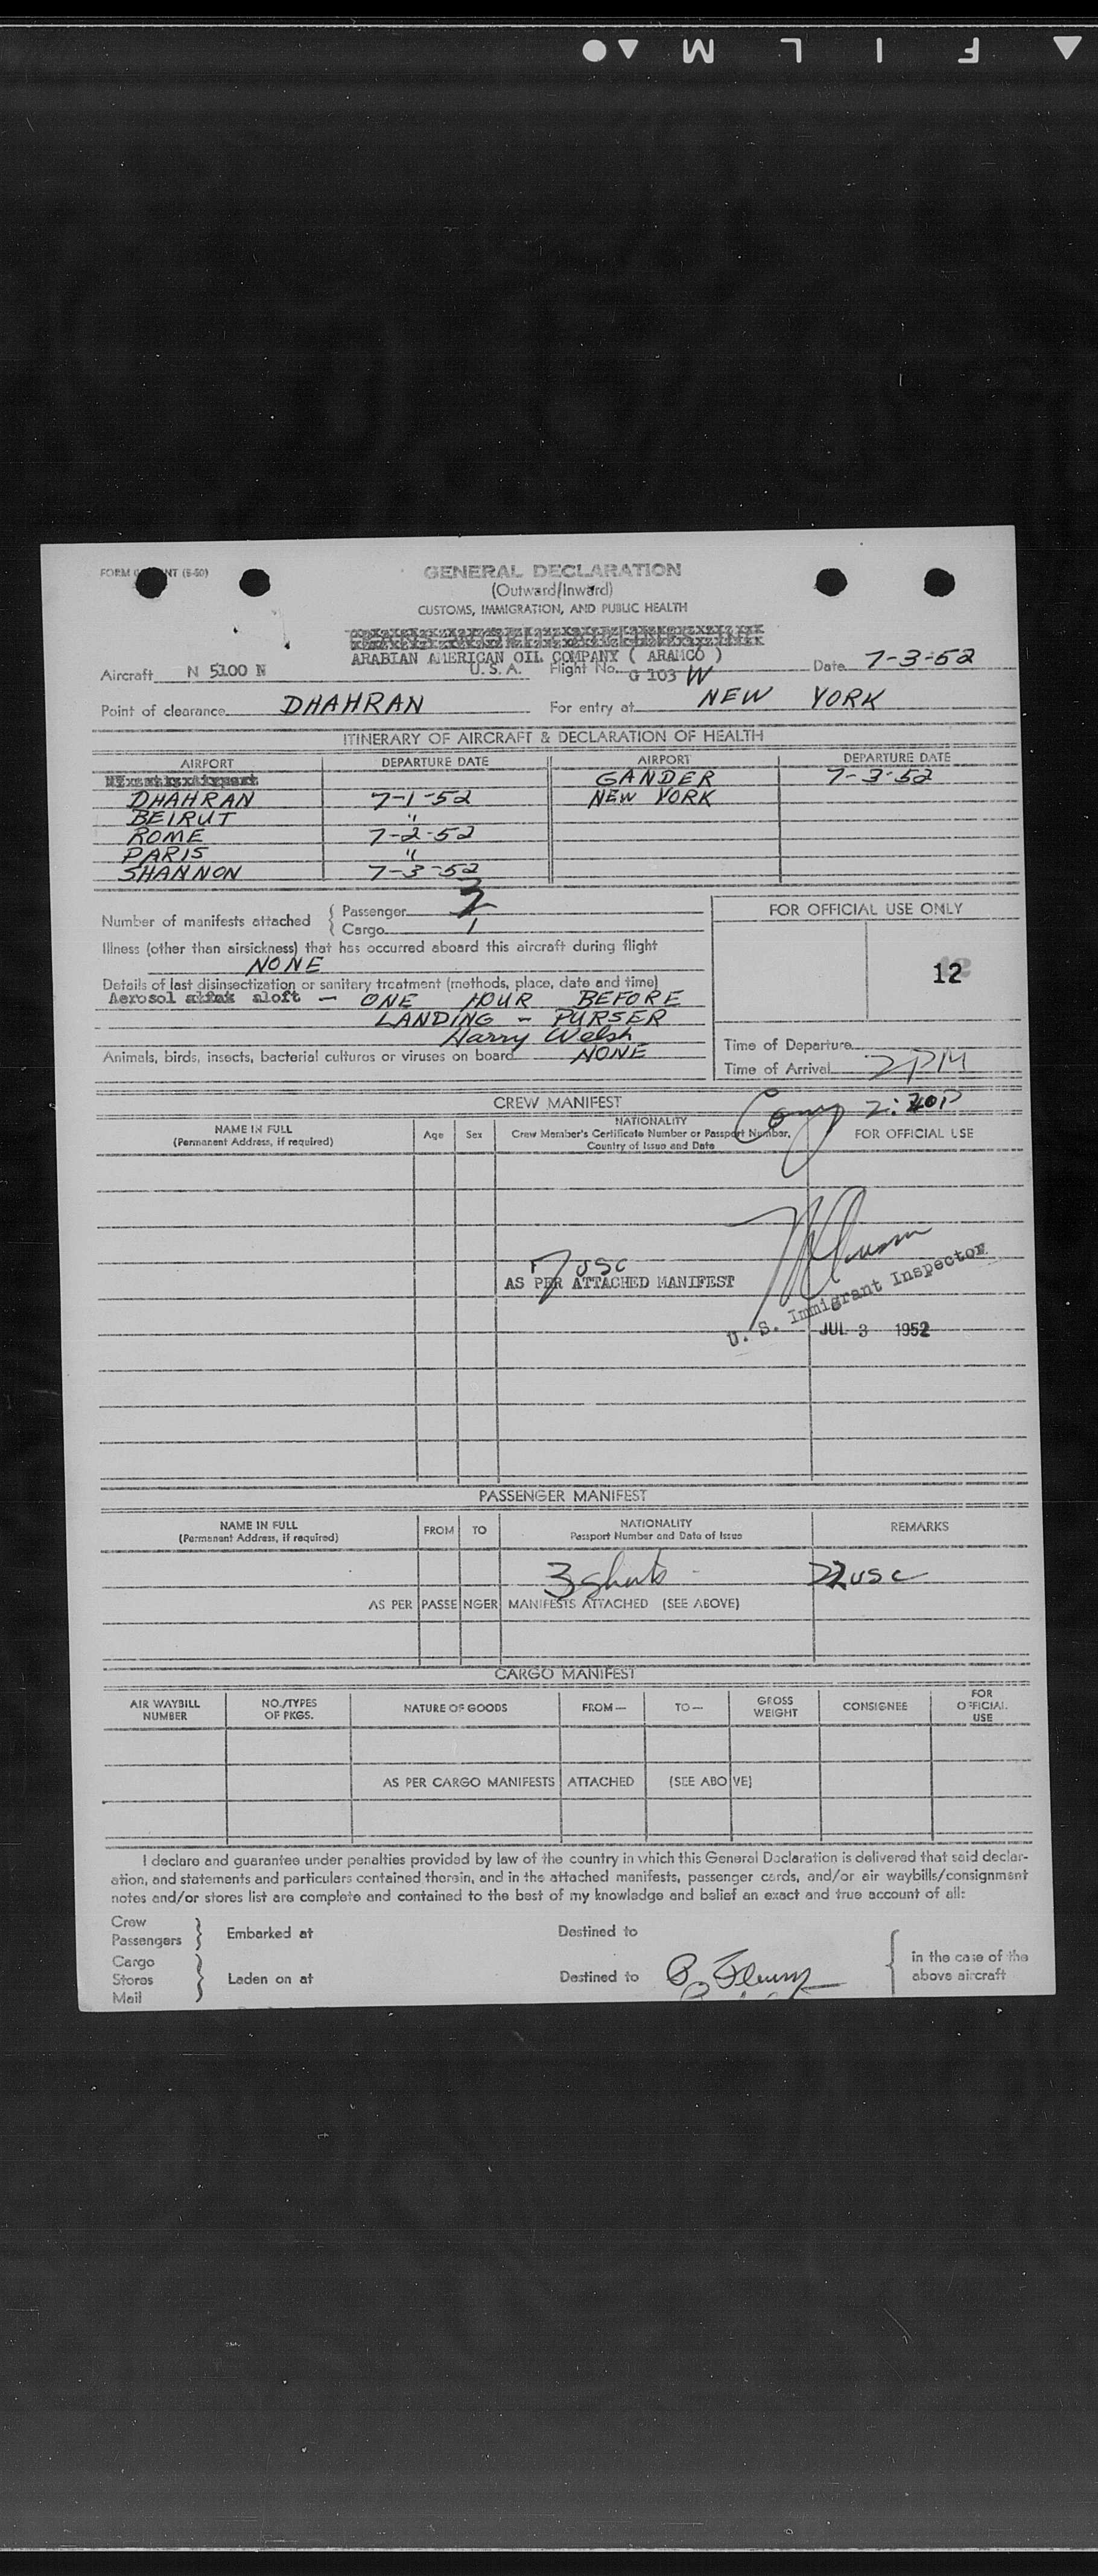 FILM
FORM NT (5-50)
GENERAL DECLARATION
(Outward/Inward)
CUSTOMS, IMMIGRATION, AND PUBLIC HEALTH
ARABIAN AMERICAN OIL COMPANY ( ARAMCO )
Aircraft N 5100 N U.S.A. Flight No. G 103 W Date 7-3-52
Point of clearance DHAHRAN For entry at NEW YORK
ITINERARY OF AIRCRAFT & DECLARATION OF HEALTH
AIRPORT DEPARTURE DATE AIRPORT DEPARTURE DATE
GANDER 7-3-52
DHAHRAN 7-1-52 NEW YORK
BEIRUT "
ROME 7-2-52
PARIS "
SHANNON 7-3-52
Number of manifests attached { Passenger 3
Cargo 1
FOR OFFICIAL USE ONLY
12
Illness (other than airsickness) that has occurred aboard this aircraft during flight
NONE
Details of last disinsectization or sanitary treatment (methods, place, date and time)
Aerosol aloft - ONE HOUR BEFORE
LANDING - PURSER
Harry Welsh
Animals, birds, insects, bacterial cultures or viruses on board NONE
Time of Departure
Time of Arrival 2PM
2:20P
CREW MANIFEST
NAME IN FULL
(Permanent Address, if required)
Age Sex
NATIONALITY
Crew Member's Certificate Number or Passport Number,
Country of Issue and Date
FOR OFFICIAL USE
7 USC
AS PER ATTACHED MANIFEST
U. S. Immigrant Inspector
JUL 3 1952
PASSENGER MANIFEST
NAME IN FULL
(Permanent Address, if required)
FROM TO
NATIONALITY
Passport Number and Date of Issue
REMARKS
3 sheets - 22 USC
AS PER PASSENGER MANIFESTS ATTACHED (SEE ABOVE)
CARGO MANIFEST
AIR WAYBILL
NUMBER
NO./TYPES
OF PKGS.
NATURE OF GOODS
FROM—
TO—
GROSS
WEIGHT
CONSIGNEE
FOR
OFFICIAL
USE
AS PER CARGO MANIFESTS ATTACHED (SEE ABOVE)
I declare and guarantee under penalties provided by law of the country in which this General Declaration is delivered that said declar-
ation, and statements and particulars contained therein, and in the attached manifests, passenger cards, and/or air waybills/consignment
notes and/or stores list are complete and contained to the best of my knowledge and belief an exact and true account of all:
Crew
Passengers } Embarked at Destined to
Cargo
Stores } Laden on at Destined to
Mail
{ in the case of the
above aircraft